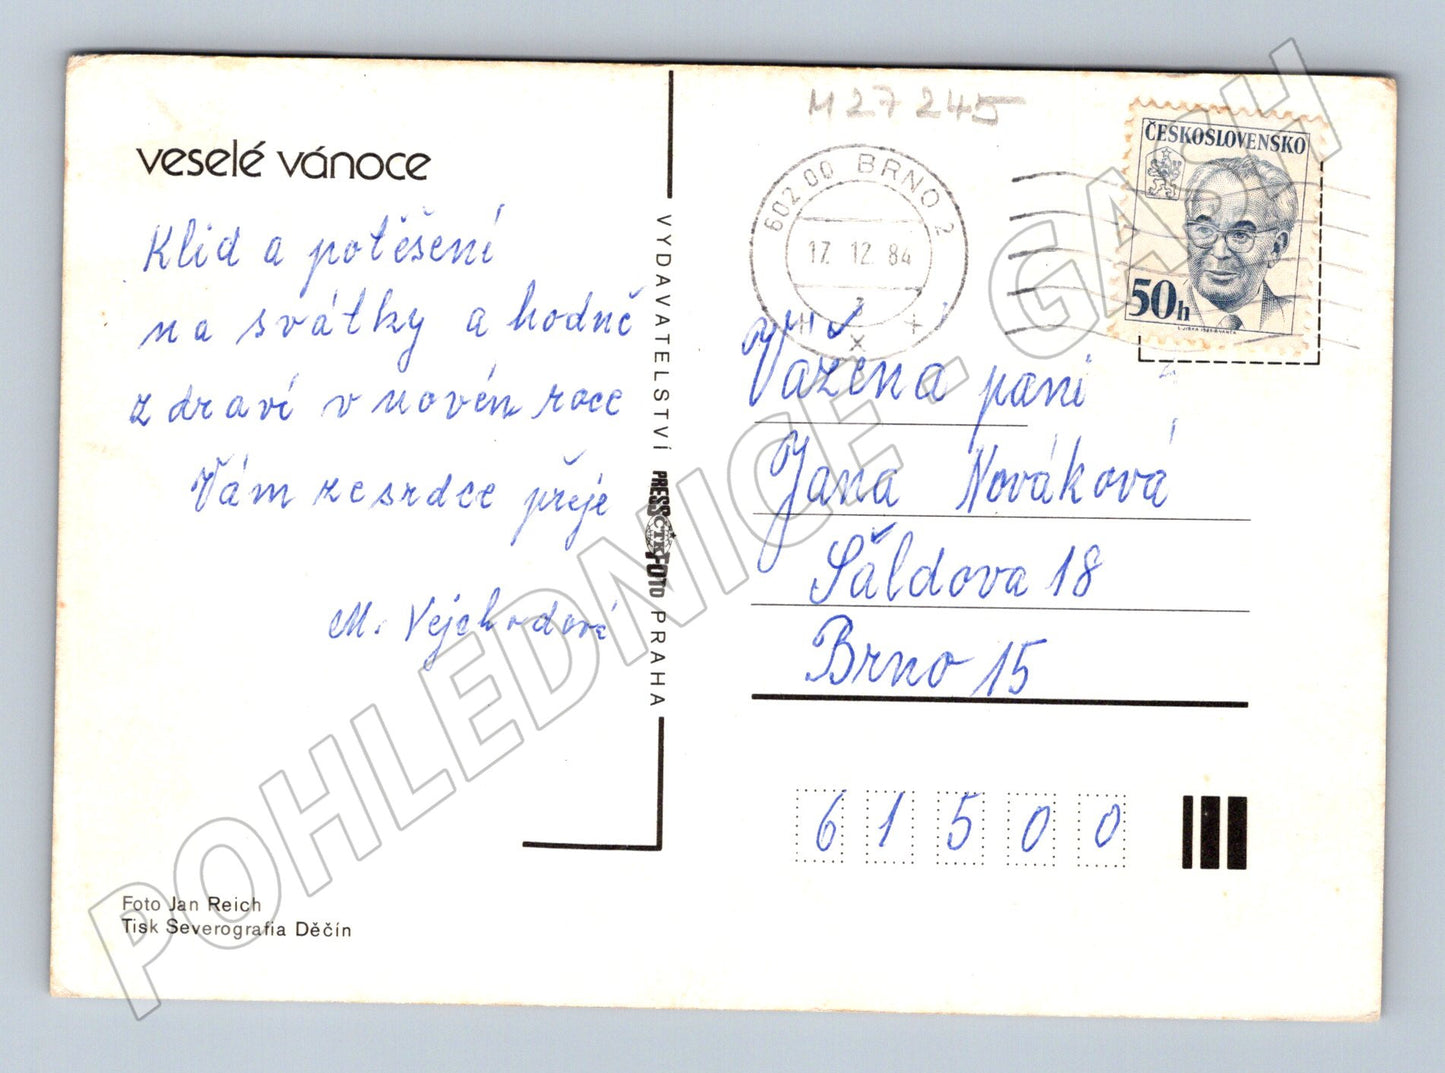 veselé vánoce
Klid a potěšení
na svátky a hodně
zdraví v novém roce
Vám ze srdce přeje
M. Vejchodová
VYDAVATELSTVÍ PRESSFOTO PRAHA
ČTK
Foto Jan Reich
Tisk Severografia Děčín
M27245
602 00 BRNO 2
17. 12. 84
ČESKOSLOVENSKO
50h
Vážená paní
Jana Nováková
Šaldova 18
Brno 15
61500
POHLEDNICE - GASH